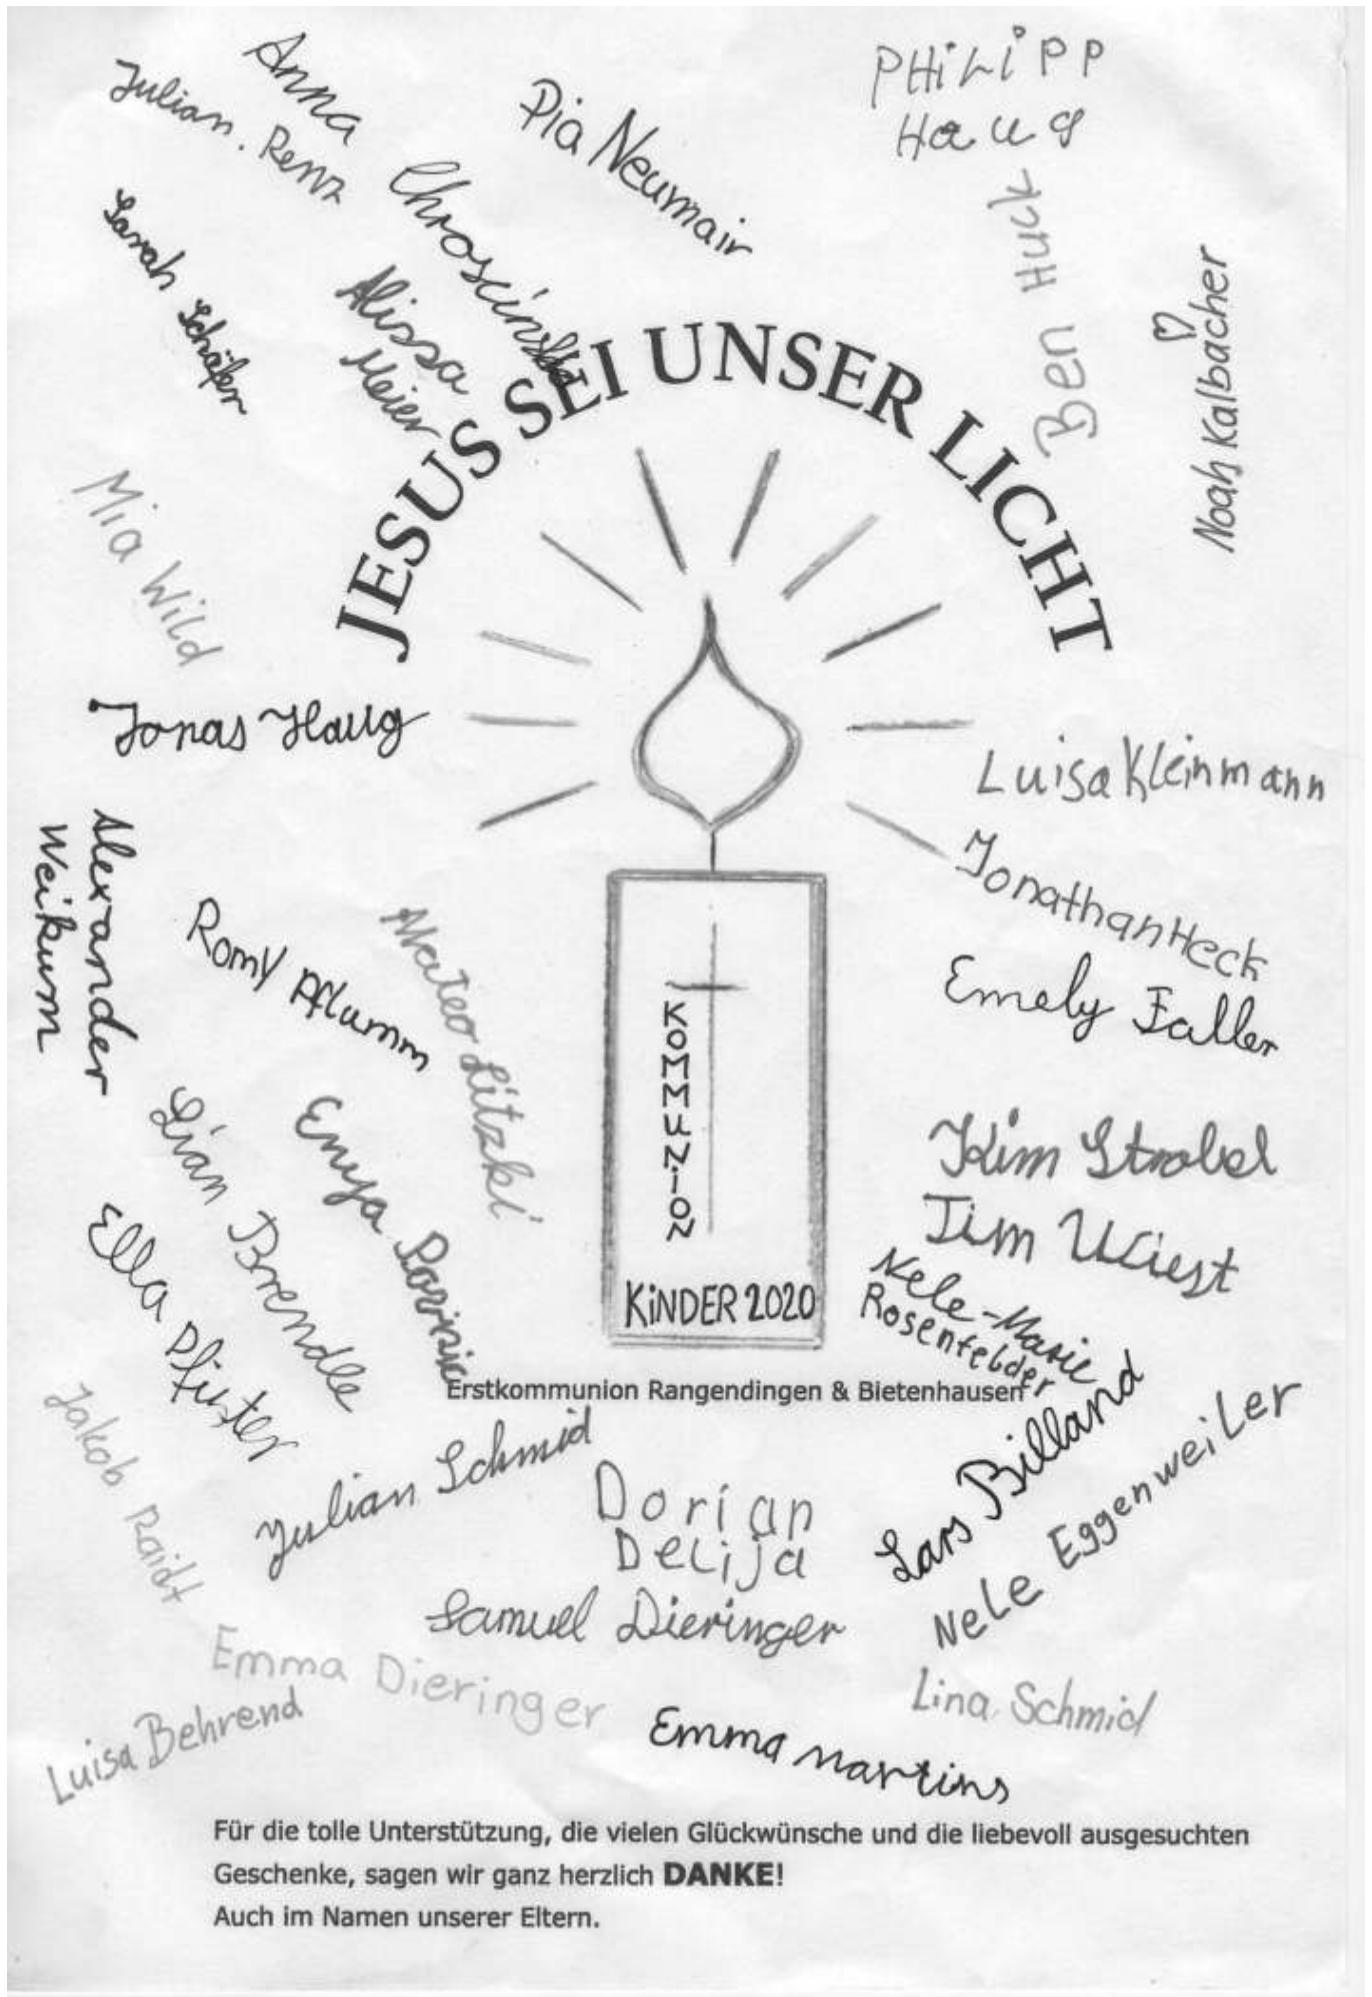 Anna
Chroscinska
Julian Renz
Pia Neumair
PHiLiPP
Haug
Ben Huck
Noah Kalbacher
Sarah Schäfer
Alissa
Meier
JESUS SEI UNSER LICHT
Mia Wild
Jonas Haug
Luisa Kleinmann
Jonathan Heck
Emely Faller
Alexander
Weikum
Romy Pflumm
Mateo Litzki
KOMMUNiON
KiNDER 2020
Kim Strobel
Tim Wiest
Nele-Marie
Rosenfelder
Lian Brendle
Enya
Ella Pfister
Erstkommunion Rangendingen & Bietenhausen
Jakob Raidt
Julian Schmid
Dorian
Delija
Lars Billand
Nele Eggenweiler
Samuel Dieringer
Emma Dieringer
Lina Schmid
Luisa Behrend
Emma Martins
Für die tolle Unterstützung, die vielen Glückwünsche und die liebevoll ausgesuchten
Geschenke, sagen wir ganz herzlich DANKE!
Auch im Namen unserer Eltern.